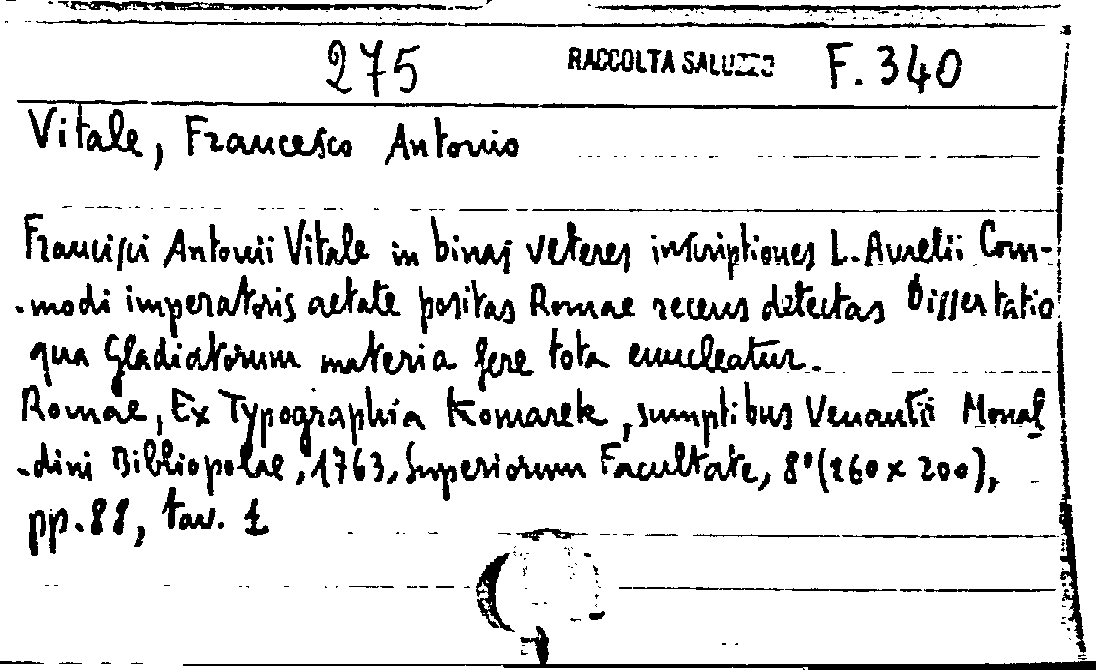 275 RACCOLTA SALUZZO F. 340
Vitale, Francesco Antonio
Francisci Antonii Vitale in binas veteres inscriptiones L. Aurelii Com-
-modi imperatoris aetate positas Romae recens detectas Dissertatio
qua Gladiatorum materia fere tota enucleatur.
Romae, Ex Typographia Komarek, sumptibus Venantii Monal
-dini Bibliopolae, 1763, Superiorum Facultate, 8° (260 x 200),
pp. 88, tav. 1